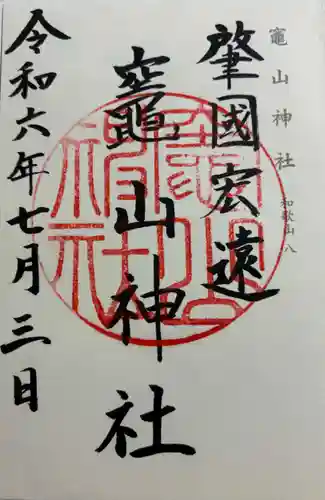 竈山神社
和歌山八
肇國宏遠
竈山神社
令和六年七月三日